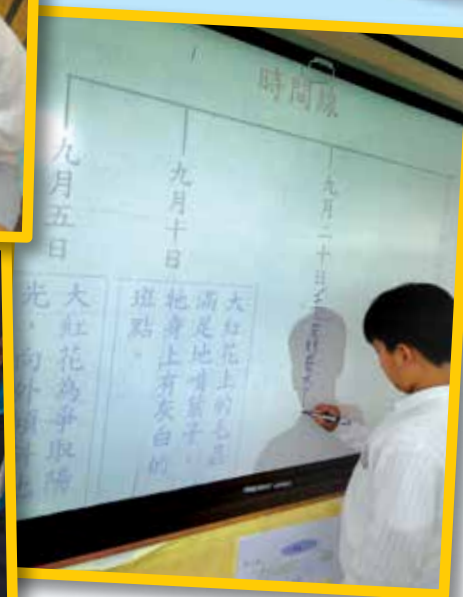 時間線
九月五日
大紅花為爭取陽
光，向外
九月十日
大紅花上的毛蟲
滿足地啃葉子，
牠身上有灰白的
斑點。
九月二十日